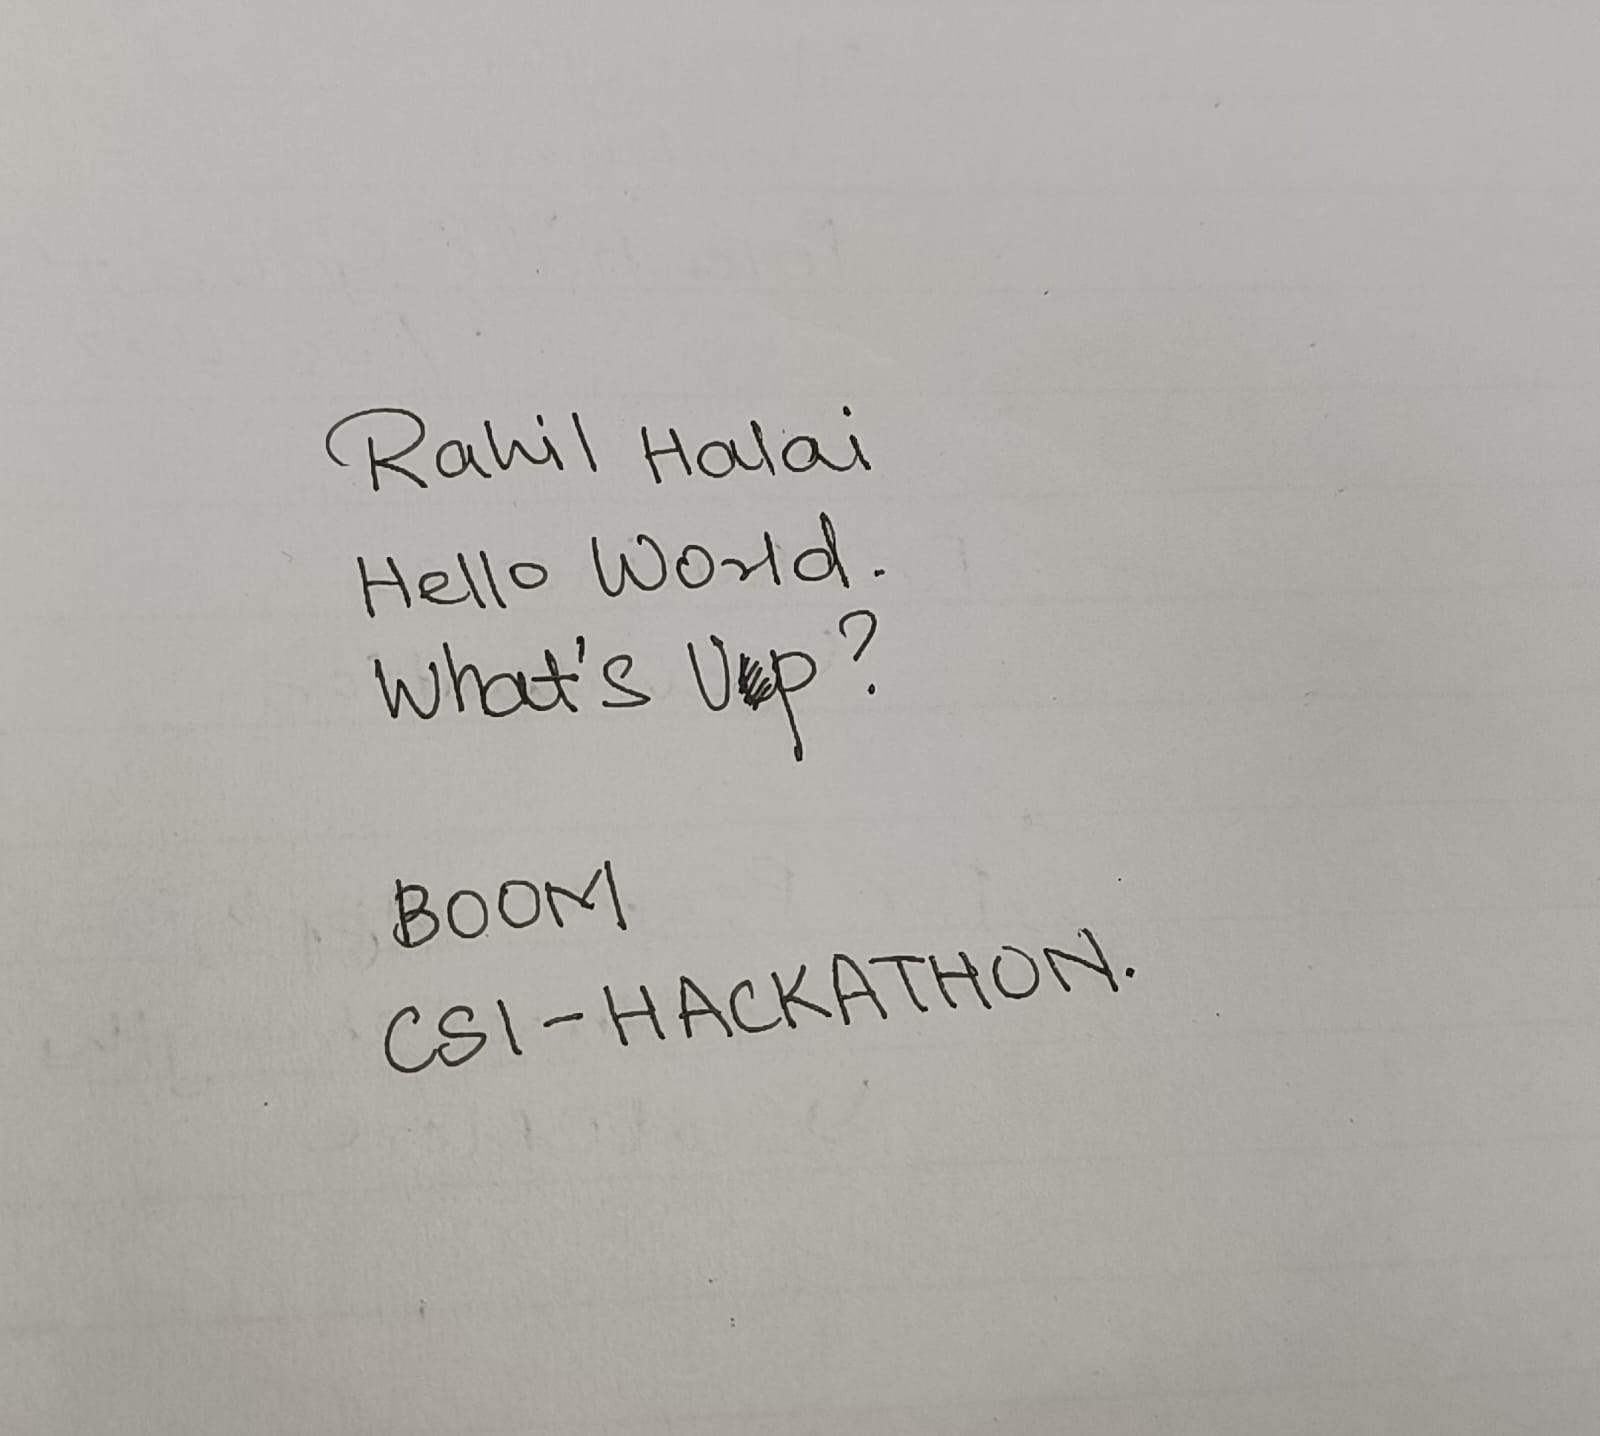 Rahil Halai
Hello World.
What's Up?
BOOM
CSI-HACKATHON.